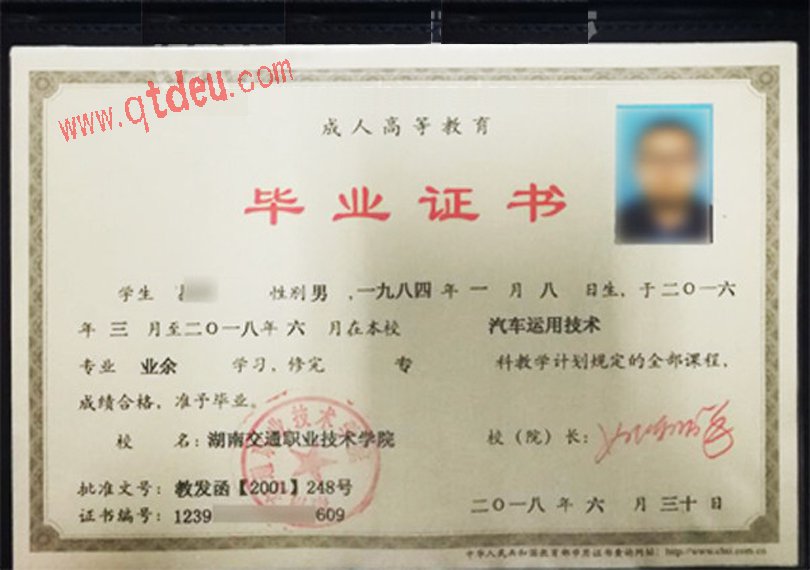 www.qtdeu.com
成人高等教育
毕业证书
学生 性别 男 ,一九八四 年 一 月 八 日生, 于 二〇一六
年 三 月至二〇一八年 六 月在本校 汽车运用技术
专业 业余 学习, 修完 专 科教学计划规定的全部课程,
成绩合格, 准予毕业。
校 名: 湖南交通职业技术学院 校(院)长:
批准文号: 教发函【2001】248号
证书编号: 1239 609 二〇一八 年 六 月 三十 日
中华人民共和国教育部学历证书查询网址: http://www.chsi.com.cn